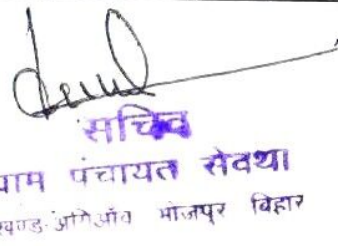 सचिव
ग्राम पंचायत सेवथा
खण्ड-अगिआँव भोजपुर बिहार